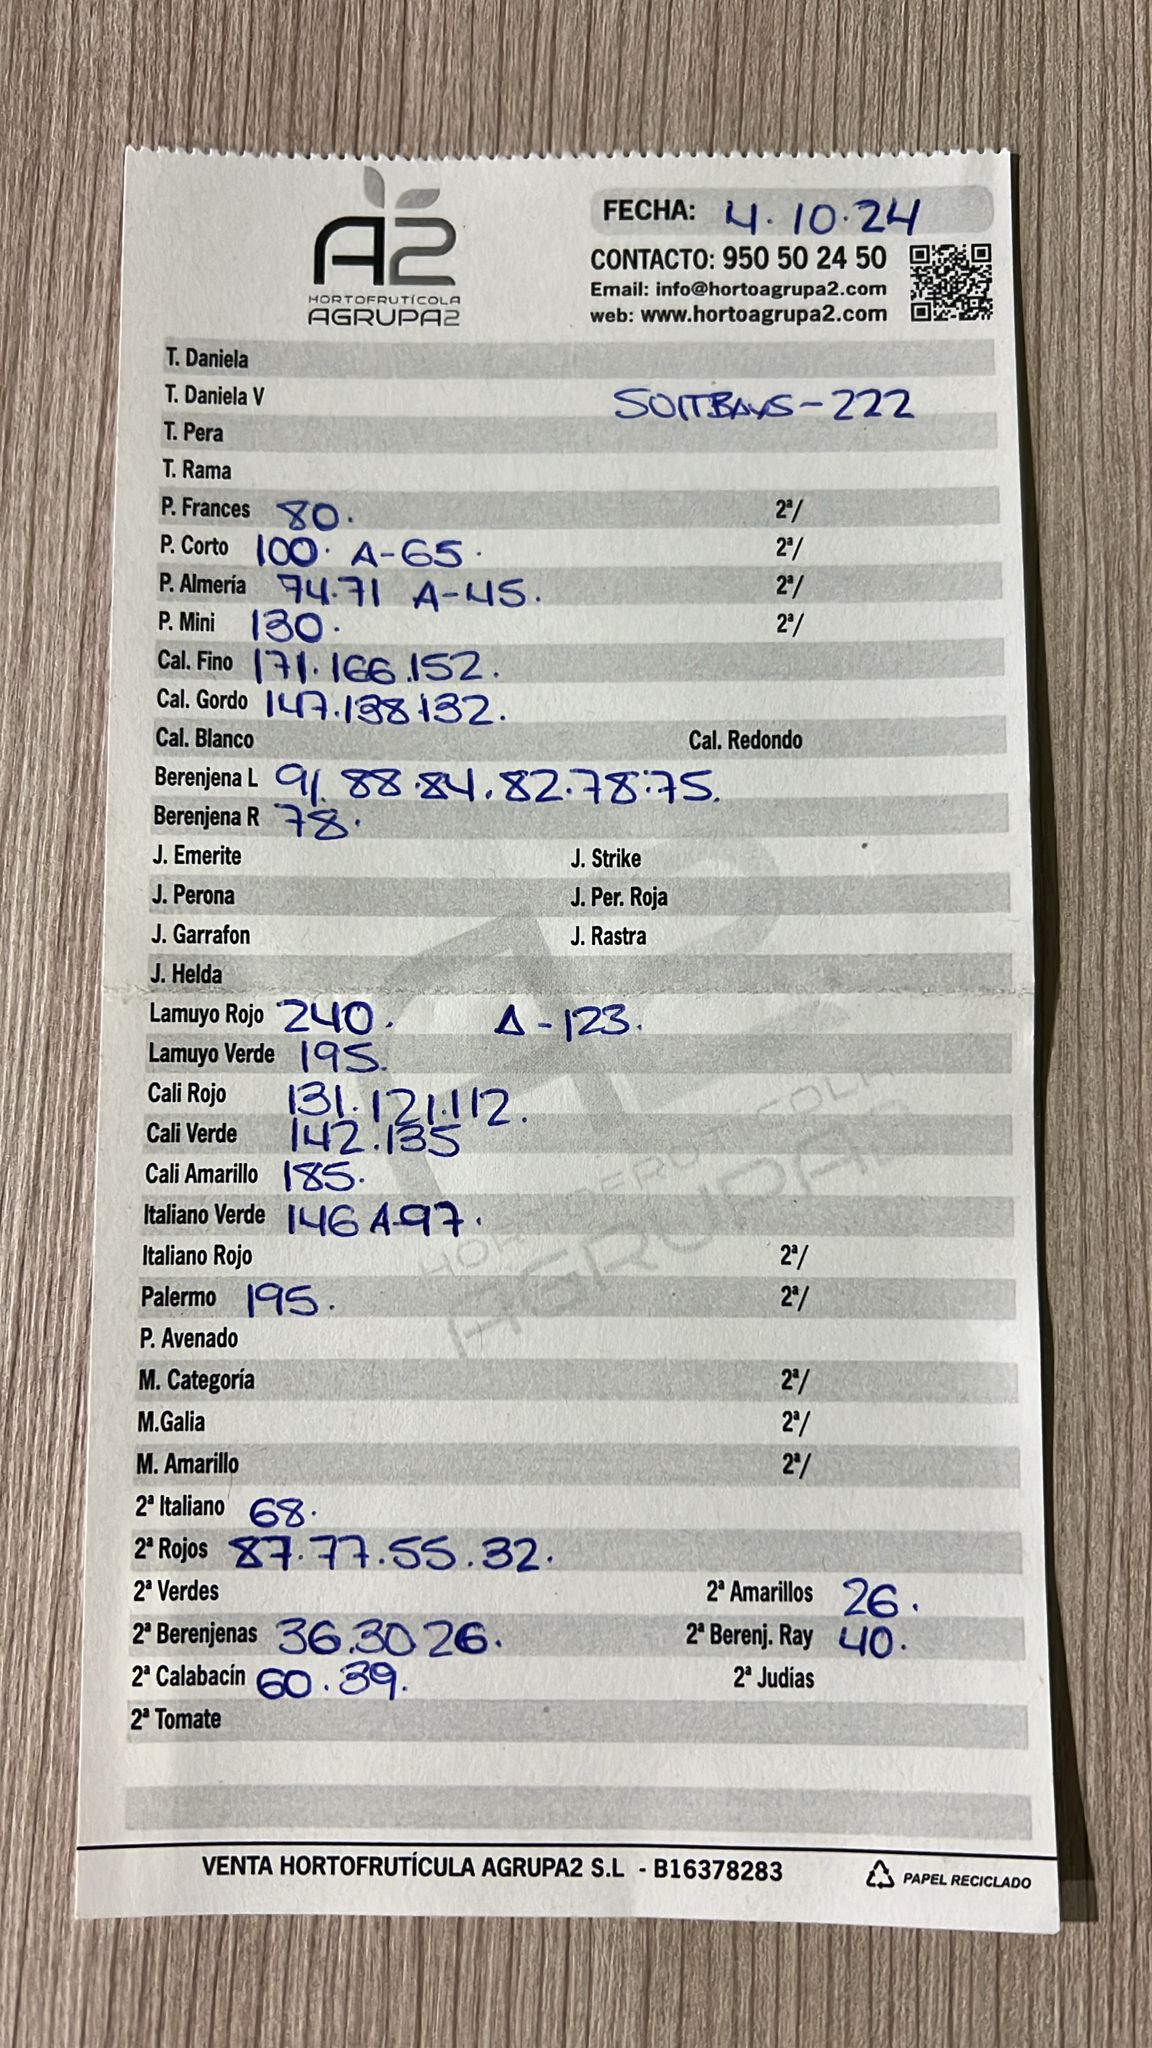 A2
HORTOFRUTÍCOLA
AGRUPA2
FECHA: 4.10.24
CONTACTO: 950 50 24 50
Email: info@hortoagrupa2.com
web: www.hortoagrupa2.com
T. Daniela
T. Daniela V SOITBAYS-222
T. Pera
T. Rama
P. Frances 80. 2ª/
P. Corto 100. A-65. 2ª/
P. Almería 74.71 A-45. 2ª/
P. Mini 130. 2ª/
Cal. Fino 171.166.152.
Cal. Gordo 147.138.132.
Cal. Blanco Cal. Redondo
Berenjena L 91.88.84.82.78.75.
Berenjena R 78.
J. Emerite J. Strike
J. Perona J. Per. Roja
J. Garrafon J. Rastra
J. Helda
Lamuyo Rojo 240. A-123.
Lamuyo Verde 195.
Cali Rojo 131.121.112.
Cali Verde 142.135
Cali Amarillo 185.
Italiano Verde 146 A-97.
Italiano Rojo 2ª/
Palermo 195. 2ª/
P. Avenado
M. Categoría 2ª/
M.Galia 2ª/
M. Amarillo 2ª/
2ª Italiano 68.
2ª Rojos 87.77.55.32.
2ª Verdes 2ª Amarillos 26.
2ª Berenjenas 36.30 26. 2ª Berenj. Ray 40.
2ª Calabacín 60.39. 2ª Judías
2ª Tomate
HORTOFRUTÍCOLA
AGRUPA2
VENTA HORTOFRUTÍCULA AGRUPA2 S.L - B16378283
PAPEL RECICLADO